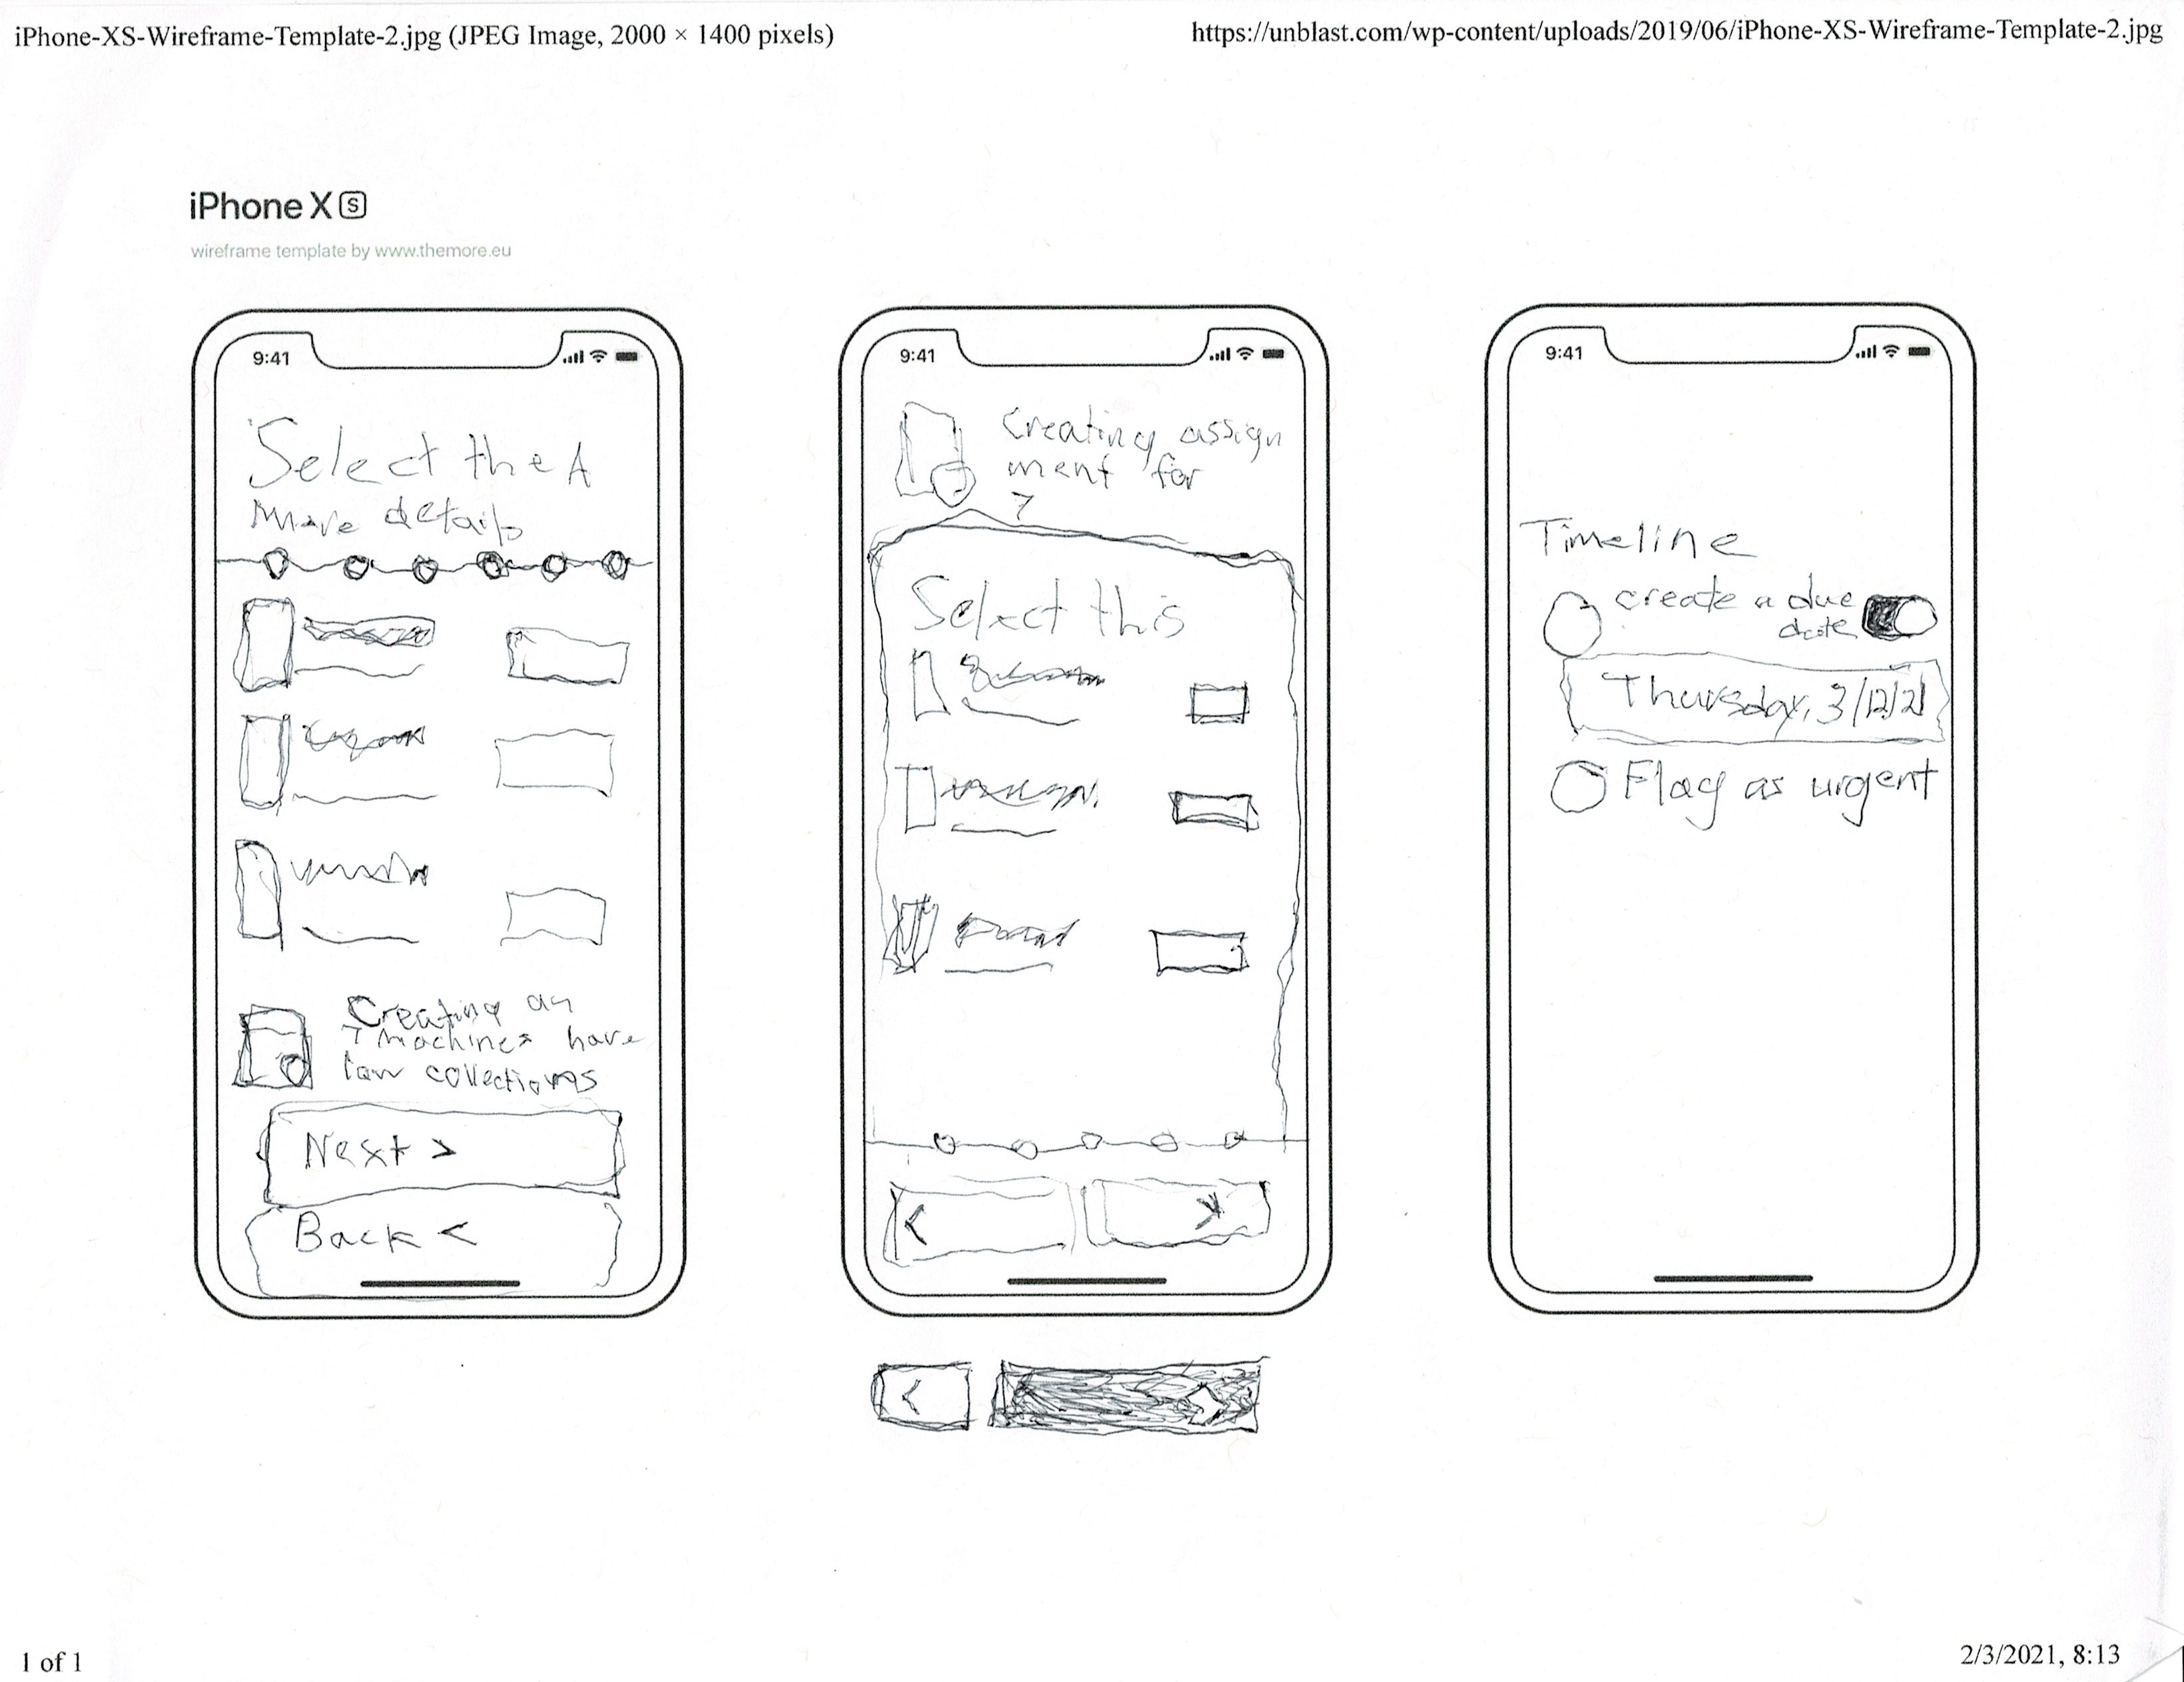 iPhone-XS-Wireframe-Template-2.jpg (JPEG Image, 2000 × 1400 pixels)
https://unblast.com/wp-content/uploads/2019/06/iPhone-XS-Wireframe-Template-2.jpg
iPhone X S
wireframe template by www.themore.eu
9:41
Select the A
more details
Creating an
7 machines have
low collections
Next >
Back <
9:41
Creating assign
ment for
7
Select this
<
>
<
>
9:41
Timeline
create a due
date
Thursday, 3/12/21
Flag as urgent
1 of 1
2/3/2021, 8:13